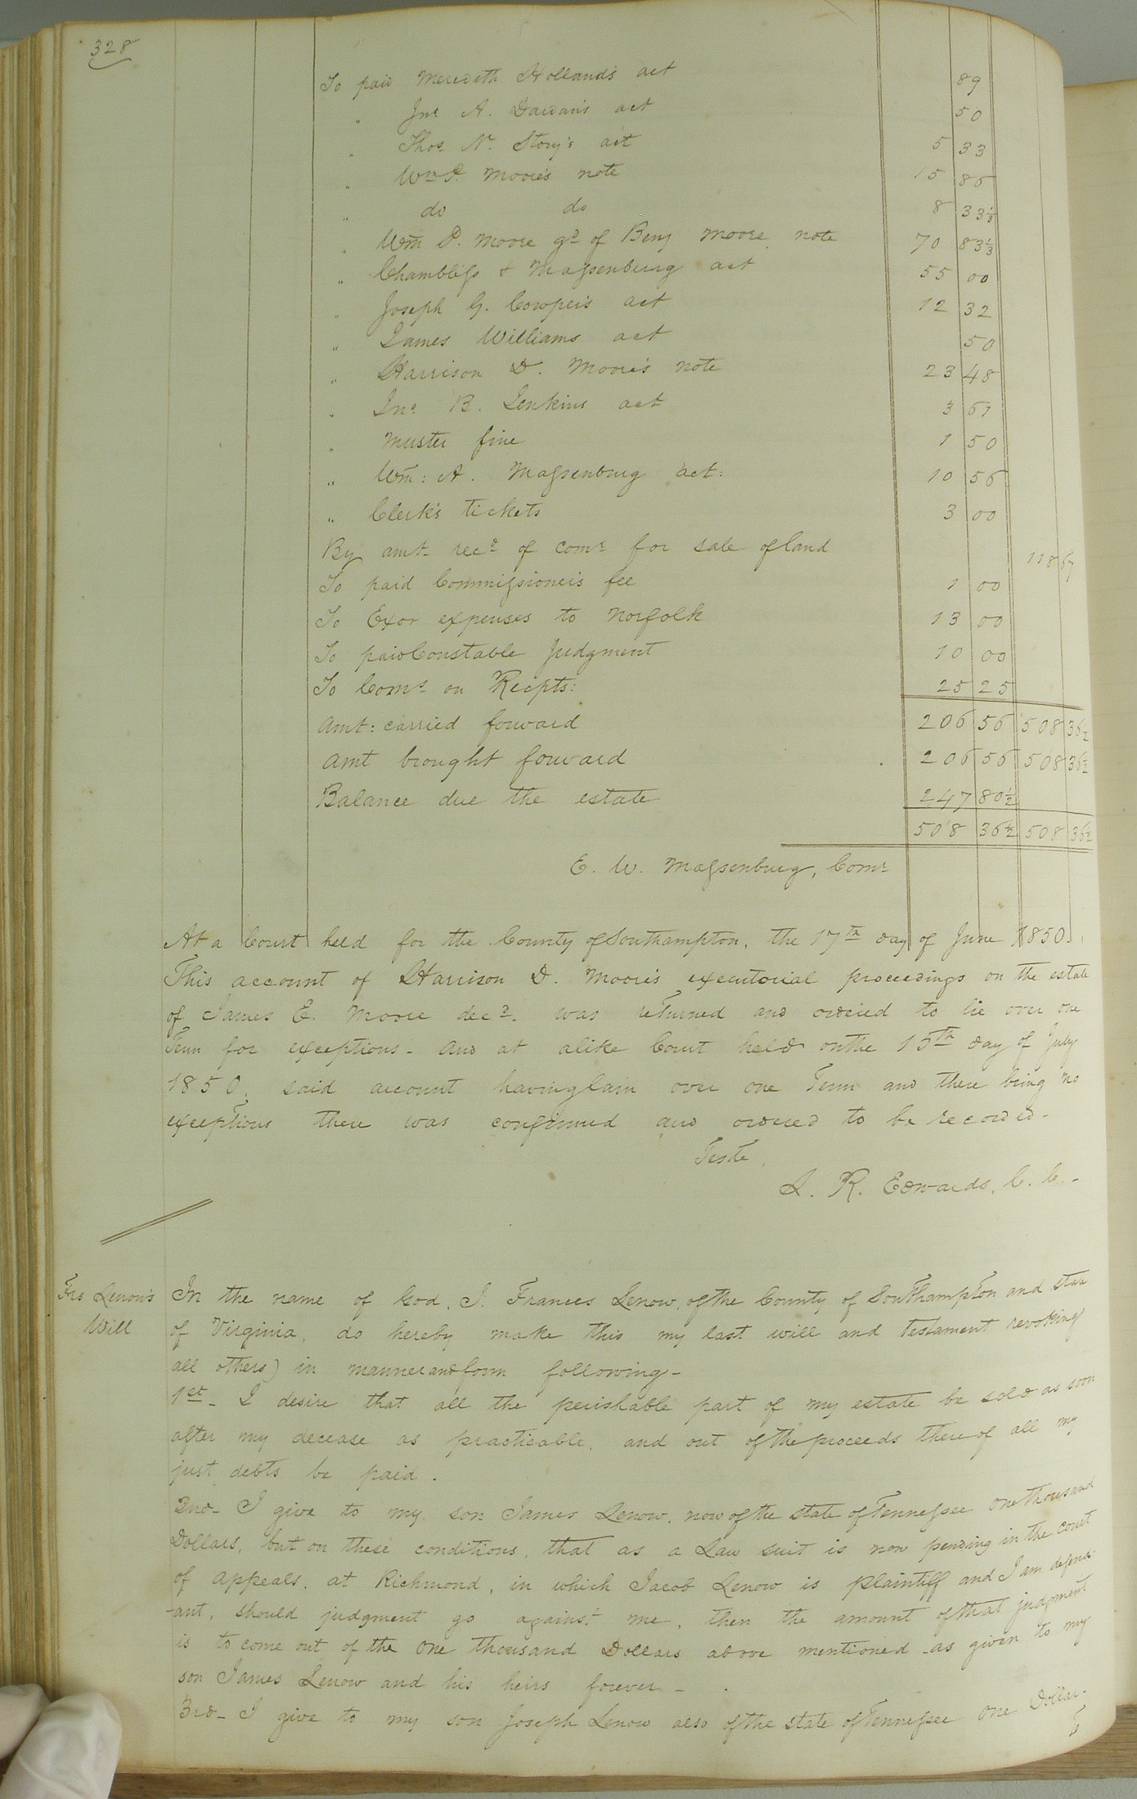 328
To paid Meredeth Holland's act 89
" Jno A. Darden's act 50
" Thos N. Story's act 5 33
" Wm P. Moore's note 15 86
" do do 8 33⅓
" Wm P. Moore gd of Benj Moore note 70 83⅓
" Chambliss & Massenburg act 55 00
" Joseph G. Cowper's act 12 32
" James Williams act 50
" Harrison D. Moore's note 23 48
" Jno B. Jenkins act 3 67
" Muster fine 1 50
" Wm: A. Massenburg act: 10 56
" Clerk's tickets 3 00
By amt recd of comr for sale of land 118 67
To paid Commissioner's fee 1 00
To Exor expenses to Norfolk 13 00
To paid Constable Judgment 10 00
To Coms on Recpts: 25 25
Amt: carried forward 206 56 508 36½
Amt brought forward 206 56 508 36½
Balance due the estate 247 80½
508 36½ 508 36½
E. W. Massenburg, Comr
At a Court held for the County of Southampton, the 17th day of June 1850.
This account of Harrison D. Moore's executorial proceedings on the estate
of James E. Moore decd. was returned and ordered to lie over one
Term for exceptions - And at alike Court held on the 15th day of July
1850, said account having lain over one Term and there being no
exceptions there was confirmed and ordered to be recorded -
Teste,
L. R. Edwards, C. C. -
Frs Lenow's
Will
In the name of God, I. Frances Lenow, of the County of Southampton and State
of Virginia, do hereby make this my last will and testament revoking
all others) in manner and form following -
1st - I desire that all the perishable part of my estate be sold as soon
after my decease as practicable, and out of the proceeds thereof all my
just debts be paid.
2nd - I give to my son James Lenow, now of the state of Tennessee One thousand
Dollars, but on these conditions, that as a Law suit is now pending in the court
of appeals, at Richmond, in which Jacob Lenow is plaintiff and I am defend-
-ant, should judgment go against me, then the amount of that judgment
is to come out of the One thousand Dollars above mentioned as given to my
son James Lenow and his heirs forever -
3rd - I give to my son Joseph Lenow also of the state of Tennessee One Dollar -